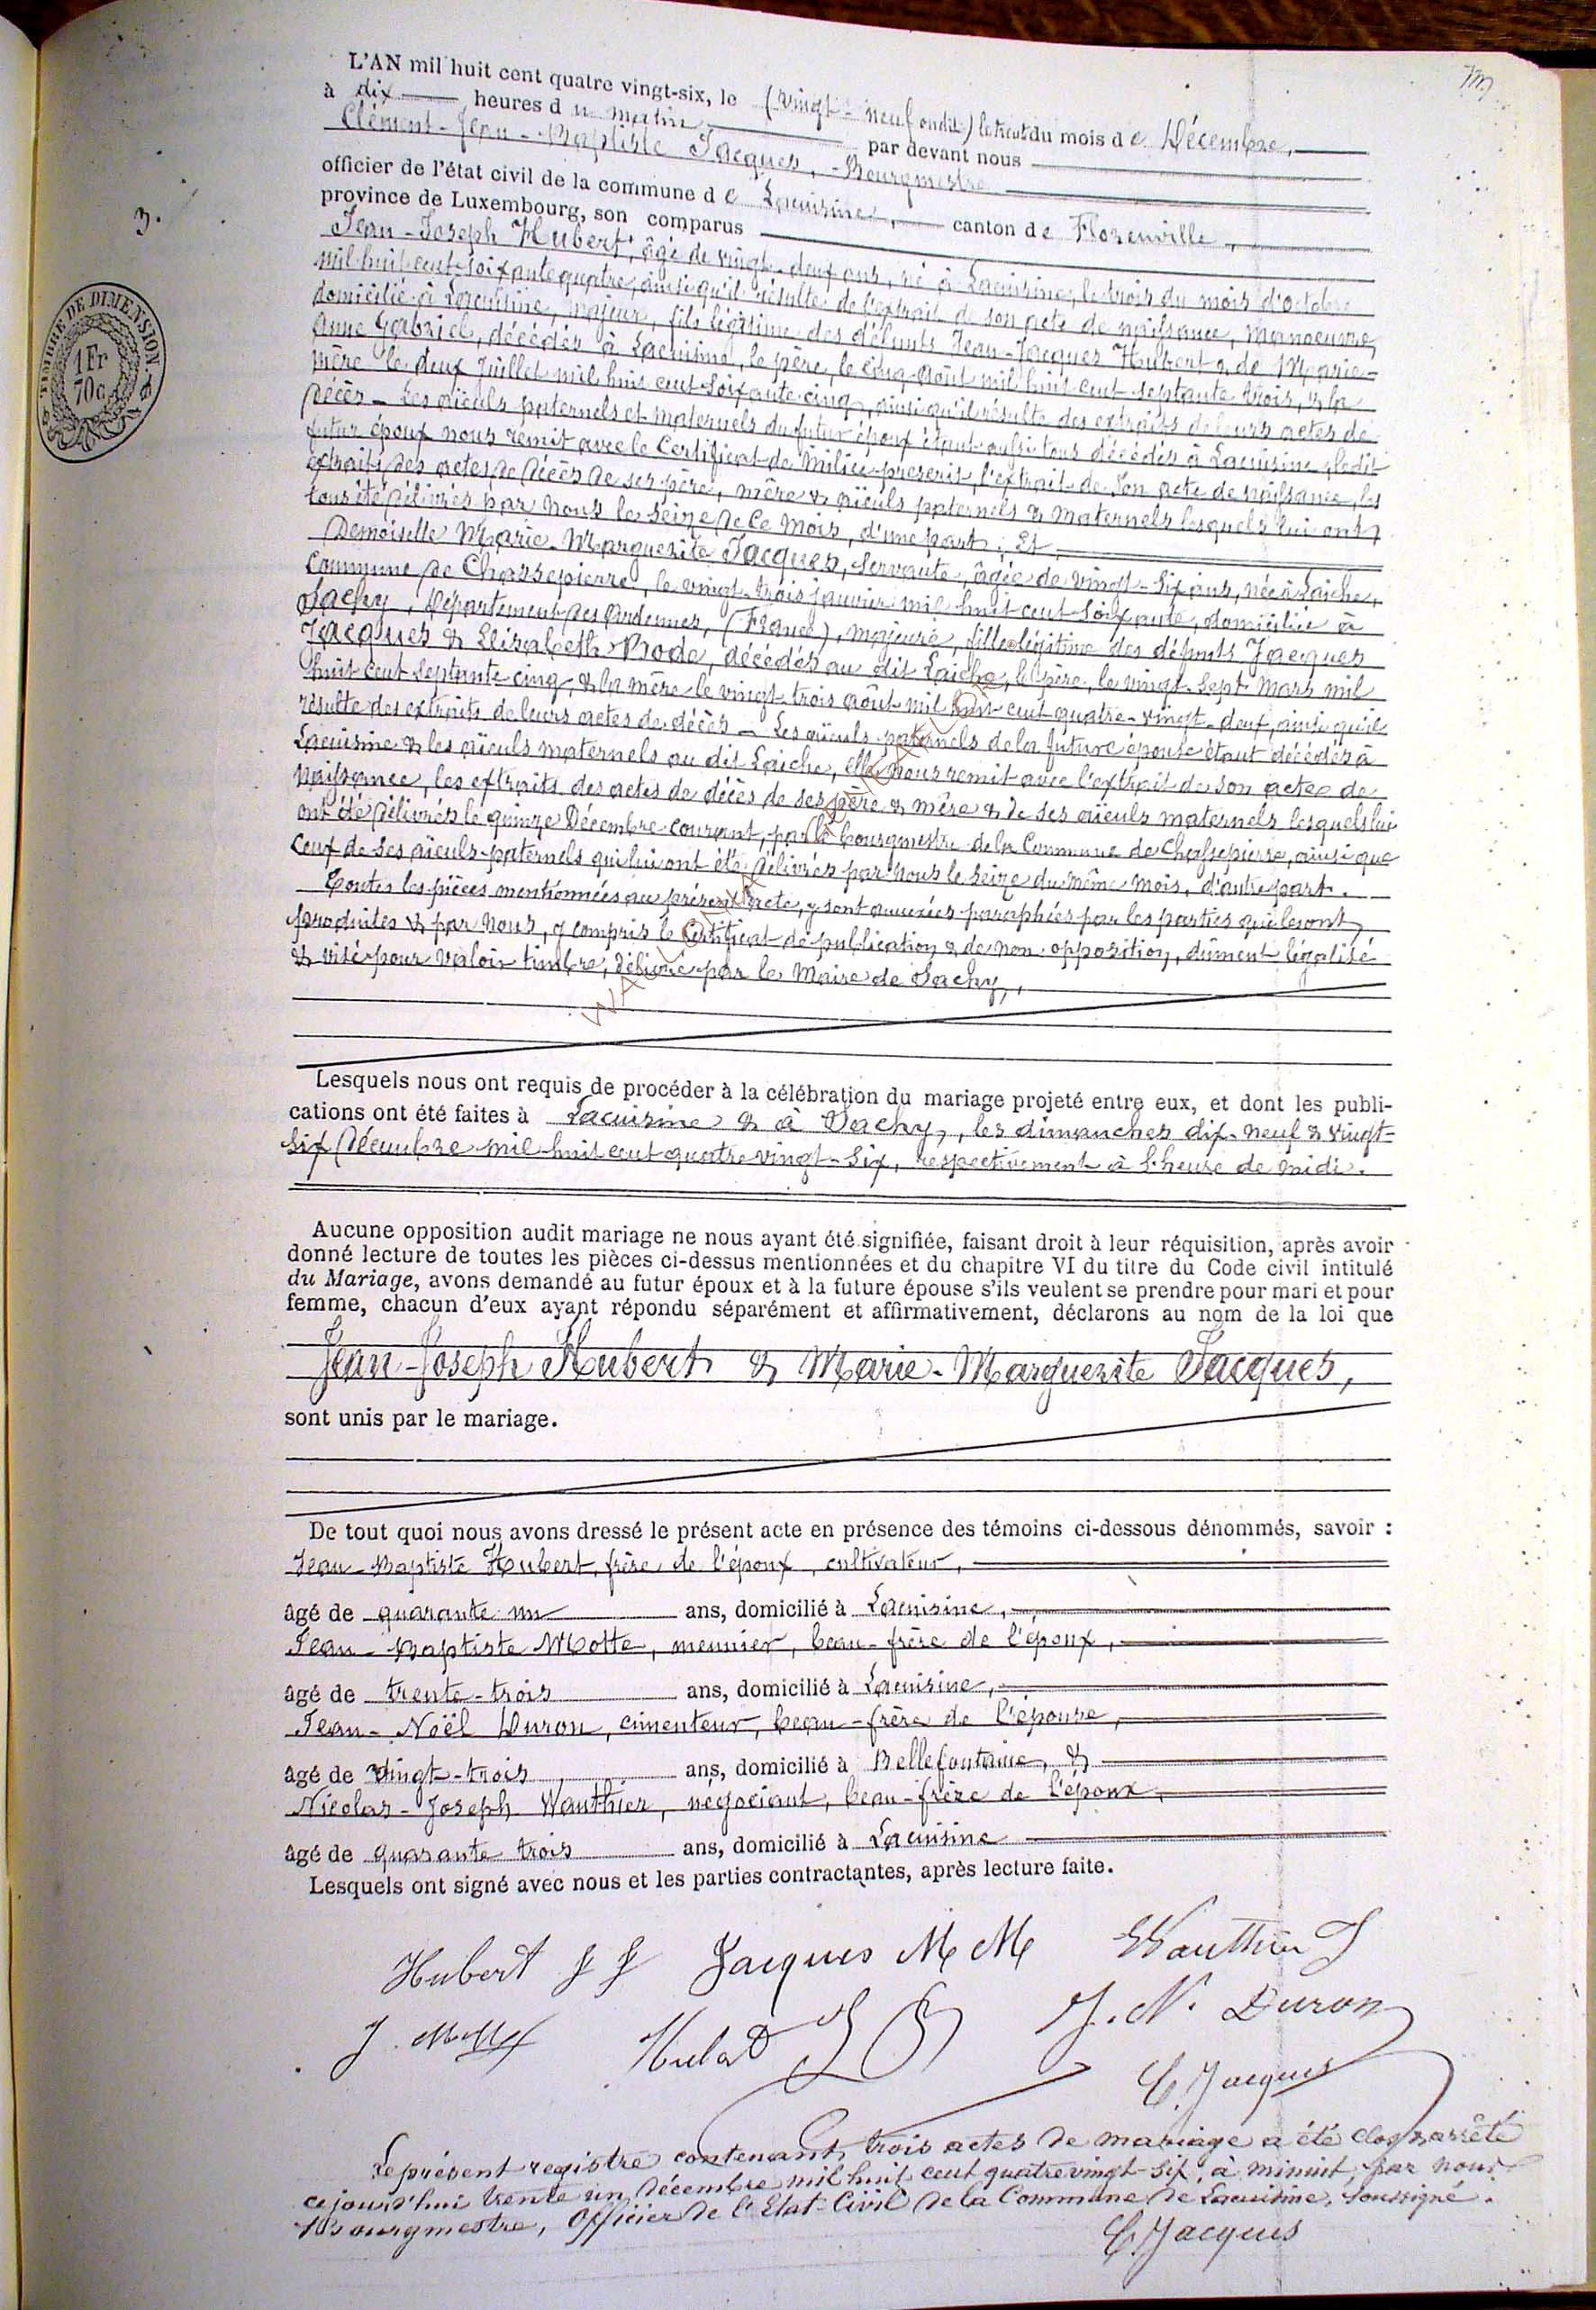 L'AN mil huit cent quatre vingt-six, le (vingt-neuf ou dit) le trente du mois de Décembre,
à dix heures du matin par devant nous
Clément-Jean-Baptiste Jacques, Bourgmestre
officier de l'état civil de la commune de Lacuisine, canton de Florenville,
province de Luxembourg, son comparus
Jean-Joseph Hubert, âgé de vingt-deux ans, né à Lacuisine, le trois du mois d'octobre
mil huit cent soixante quatre, ainsi qu'il résulte de l'extrait de son acte de naissance, manoeuvre,
domicilié à Lacuisine, majeur, fils légitime des défunts Jean-Jacques Hubert & de Marie-
Anne Gabriel, décédés à Lacuisine, le père, le cinq août mil huit cent septante trois, & la
mère le deux juillet mil huit cent soixante cinq, ainsi qu'il résulte des extraits de leurs actes de
décès - Les aïeuls paternels et maternels du futur époux étant aussi tous décédés à Lacuisine, ledit
futur époux nous remit avec le Certificat de Milice prescrit, l'extrait de son acte de naissance, les
extraits des actes de décès de ses père, mère & aïeuls paternels & maternels lesquels lui ont
tous été délivrés par nous le seize de ce mois, d'une part; Et
Demoiselle Marie-Marguerite Jacques, servante, âgée de vingt-six ans, née à Laiche,
Commune de Chassepierre, le vingt-trois janvier mil huit cent soixante, domiciliée à
Sachy, département des Ardennes, (France), majeure, fille légitime des défunts Jacques
Jacques & Elisabeth Bode, décédés au dit Laiche, le père, le vingt-sept mars mil
huit cent septante cinq, & la mère le vingt-trois août mil huit cent quatre-vingt-deux, ainsi qu'il
résulte des extraits de leurs actes de décès - Les aïeuls paternels de la future épouse étant décédés à
Lacuisine & les aïeuls maternels au dit Laiche, elle nous remit avec l'extrait de son acte de
naissance, les extraits des actes de décès de ses père & mère & de ses aïeuls maternels lesquels lui
ont été délivrés le quinze Décembre courant, par le bourgmestre de la Commune de Chassepierre, ainsi que
ceux de ses aïeuls paternels qui lui ont été délivrés par nous le seize du même mois, d'autre part.
Toutes les pièces mentionnées au présent acte, y sont annexées paraphées par les parties qui les ont
produites & par nous, y compris le certificat de publication & de non opposition, dûment légalisé
& visé pour valoir timbre, délivré par le Maire de Sachy,
Lesquels nous ont requis de procéder à la célébration du mariage projeté entre eux, et dont les publi-
cations ont été faites à Lacuisine & à Sachy, les dimanches dix-neuf & vingt-
six Décembre mil huit cent quatre vingt-six, respectivement à l'heure de midi.
Aucune opposition audit mariage ne nous ayant été signifiée, faisant droit à leur réquisition, après avoir
donné lecture de toutes les pièces ci-dessus mentionnées et du chapitre VI du titre du Code civil intitulé
du Mariage, avons demandé au futur époux et à la future épouse s'ils veulent se prendre pour mari et pour
femme, chacun d'eux ayant répondu séparément et affirmativement, déclarons au nom de la loi que
Jean-Joseph Hubert & Marie-Marguerite Jacques,
sont unis par le mariage.
De tout quoi nous avons dressé le présent acte en présence des témoins ci-dessous dénommés, savoir :
Jean-Baptiste Hubert, frère de l'époux, cultivateur,
âgé de quarante un ans, domicilié à Lacuisine,
Jean-Baptiste Motte, meunier, beau-frère de l'époux,
âgé de trente-trois ans, domicilié à Lacuisine,
Jean-Noël Duron, cimenteur, beau-frère de l'épouse,
âgé de vingt-trois ans, domicilié à Bellefontaine, &
Nicolas-Joseph Wauthier, négociant, beau-frère de l'époux,
âgé de quarante trois ans, domicilié à Lacuisine
Lesquels ont signé avec nous et les parties contractantes, après lecture faite.
Hubert J J Jacques M M Wauthier J
J. Motte Hubert J B J. N. Duron
C. Jacques
Le présent registre contenant trois actes de mariage a été clos & arrêté
ce jourd'hui trente un décembre mil huit cent quatre vingt-six, à minuit, par nous
Bourgmestre, Officier de l'Etat-Civil de la Commune de Lacuisine, soussigné.
C. Jacques
3.
TIMBRE DE DIMENSION
1 Fr
70c